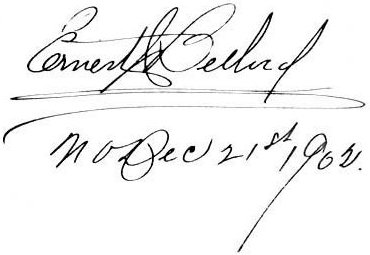 Ernest J Bellord
N O Dec 21st 1902.